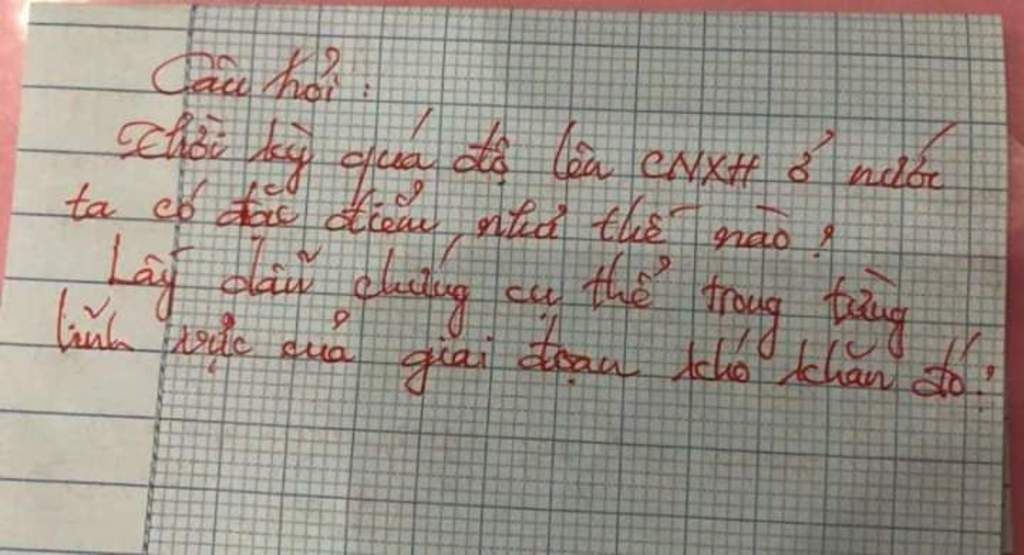 Câu hỏi:
Thời kỳ quá độ lên CNXH ở nước
ta có đặc điểm như thế nào?
Lấy dẫn chứng cụ thể trong từng
lĩnh vực của giai đoạn khó khăn đó?